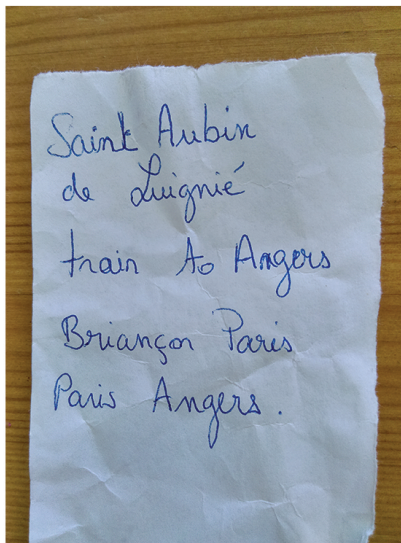 Saint Aubin
de Luignié
train to Angers
Briançon Paris
Paris Angers.